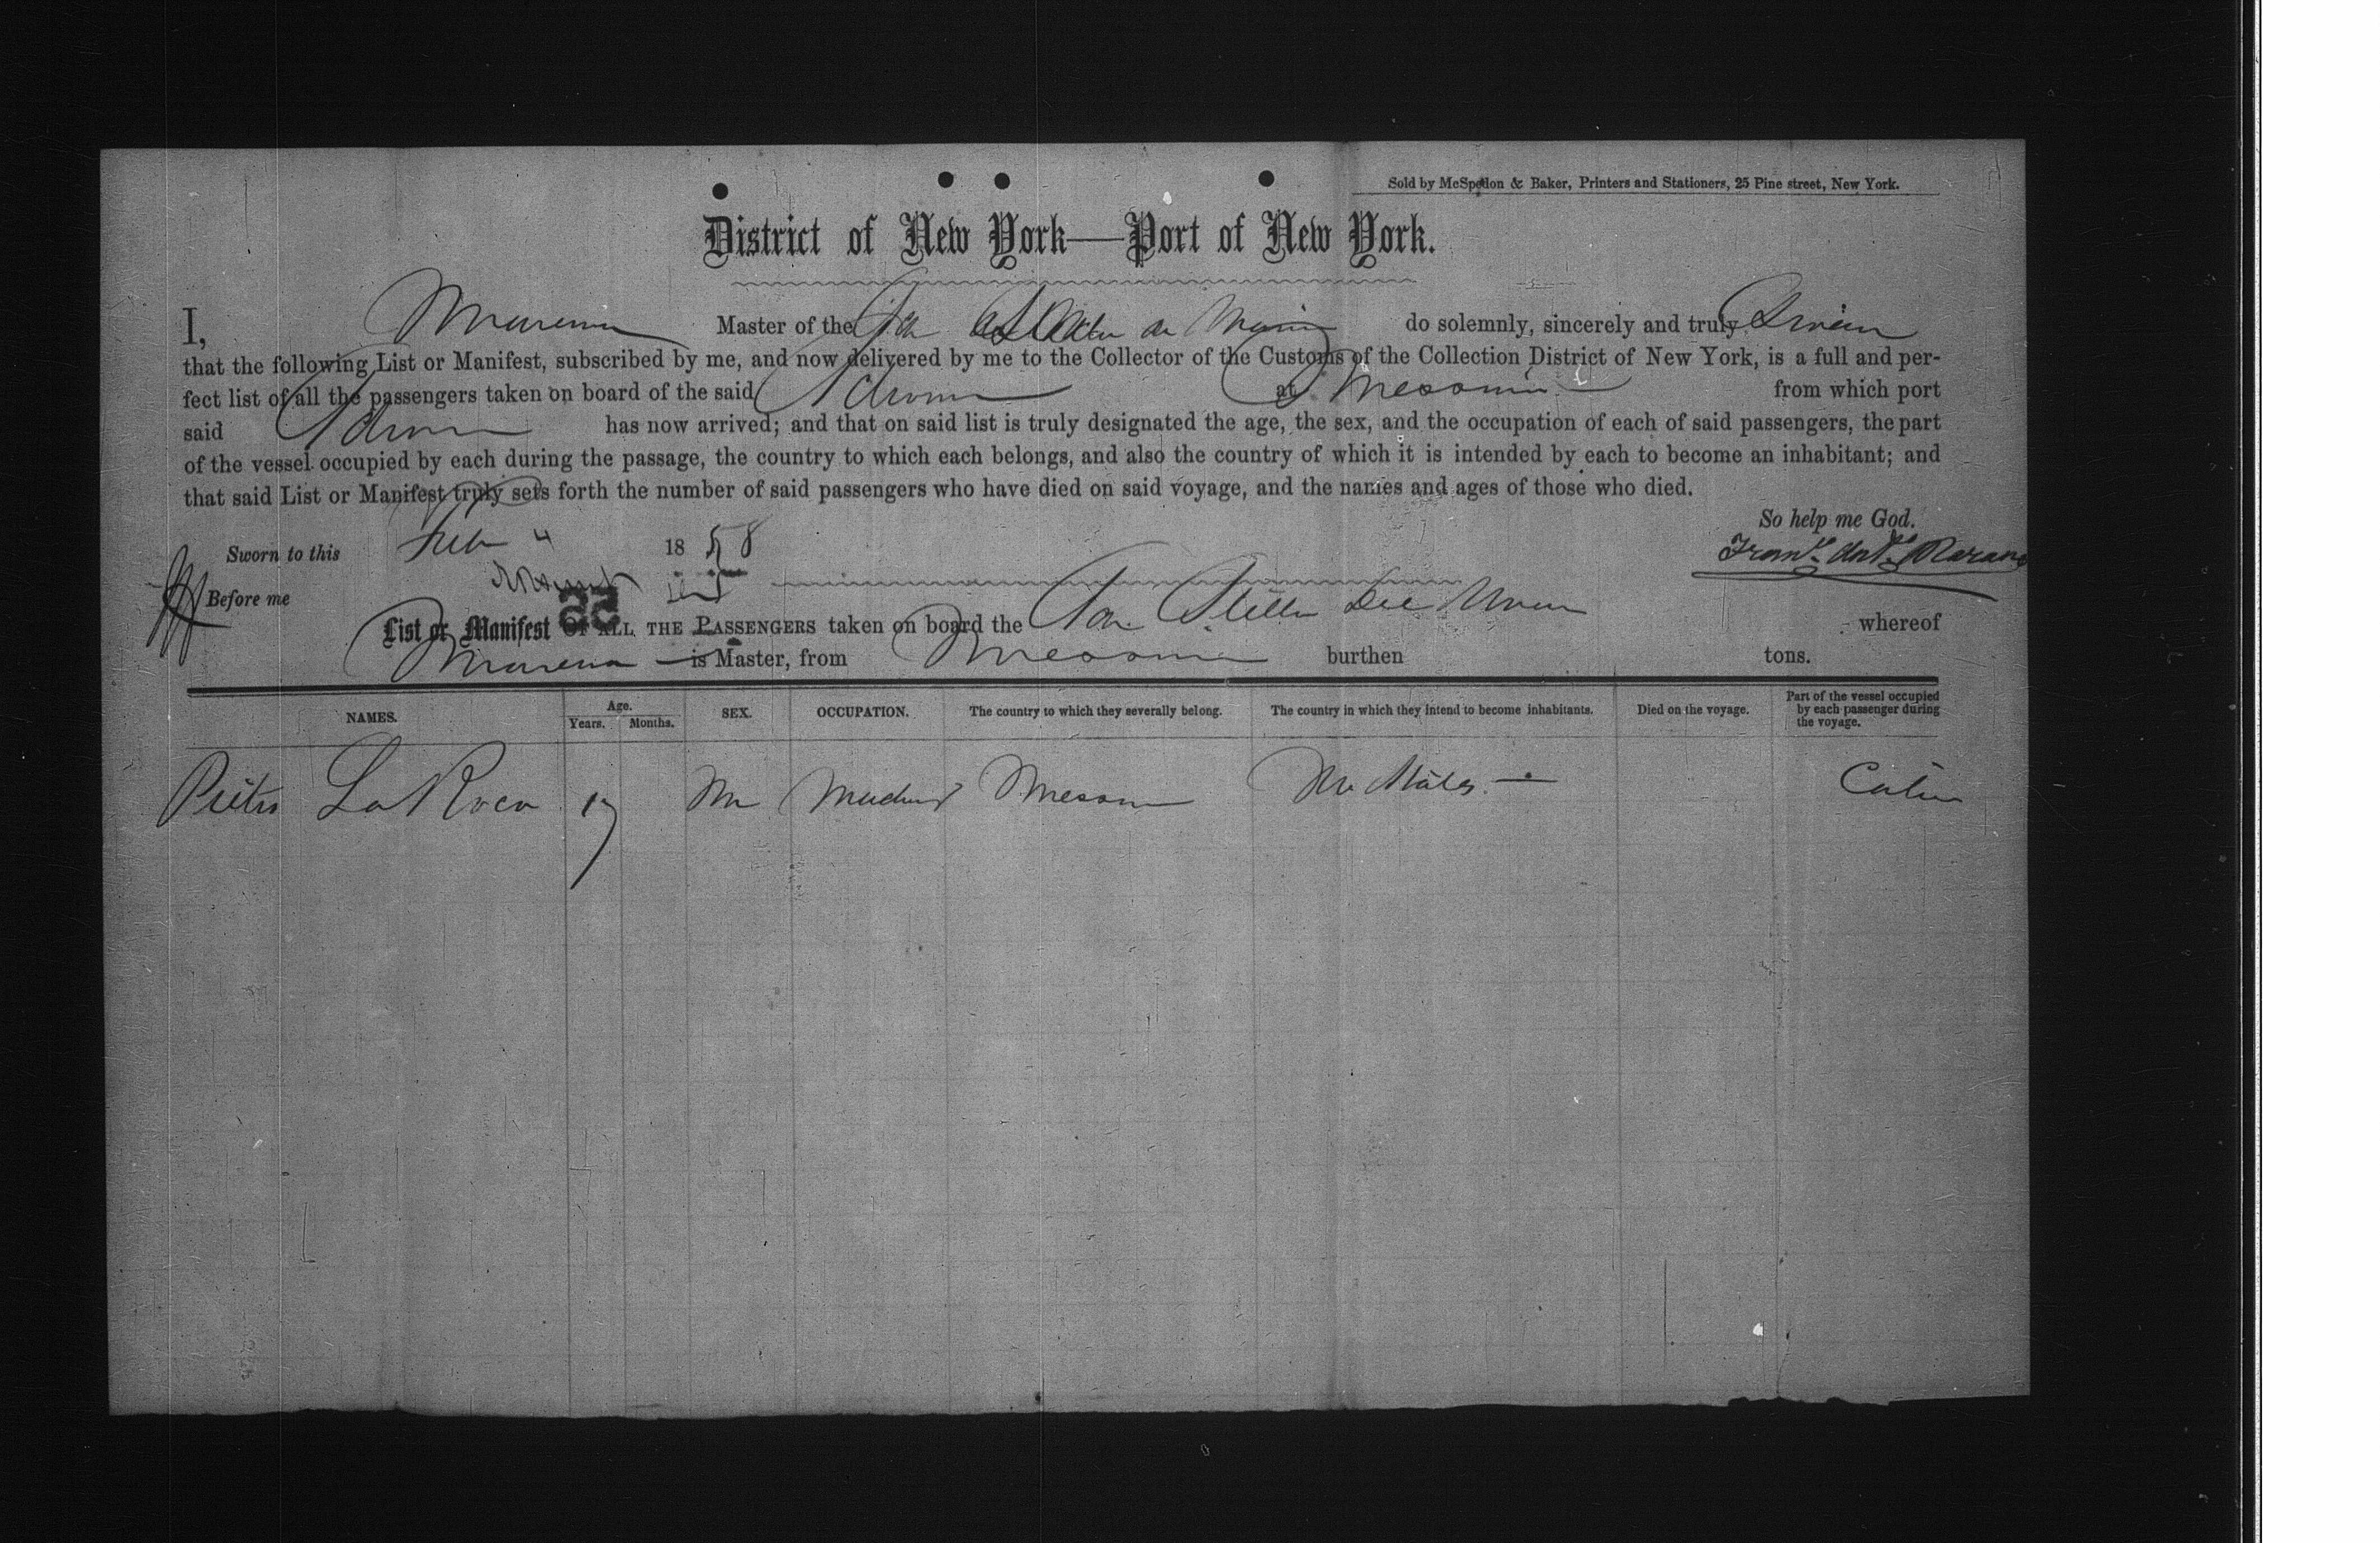 Sold by McSpedon & Baker, Printers and Stationers, 25 Pine street, New York.
District of New York—Port of New York.
I, Master of the do solemnly, sincerely and truly Swear
that the following List or Manifest, subscribed by me, and now delivered by me to the Collector of the Customs of the Collection District of New York, is a full and per-
fect list of all the passengers taken on board of the said at Messina from which port
said has now arrived; and that on said list is truly designated the age, the sex, and the occupation of each of said passengers, the part
of the vessel occupied by each during the passage, the country to which each belongs, and also the country of which it is intended by each to become an inhabitant; and
that said List or Manifest truly sets forth the number of said passengers who have died on said voyage, and the names and ages of those who died.
So help me God.
Sworn to this Feb 4 1858
Before me
55
List or Manifest OF ALL THE PASSENGERS taken on board the Stella Del whereof
is Master, from Messina burthen tons.
NAMES. Age. Years. Months. SEX. OCCUPATION. The country to which they severally belong. The country in which they intend to become inhabitants. Died on the voyage. Part of the vessel occupied by each passenger during the voyage.
Pietro La Roca 17 M Messina States Cabin